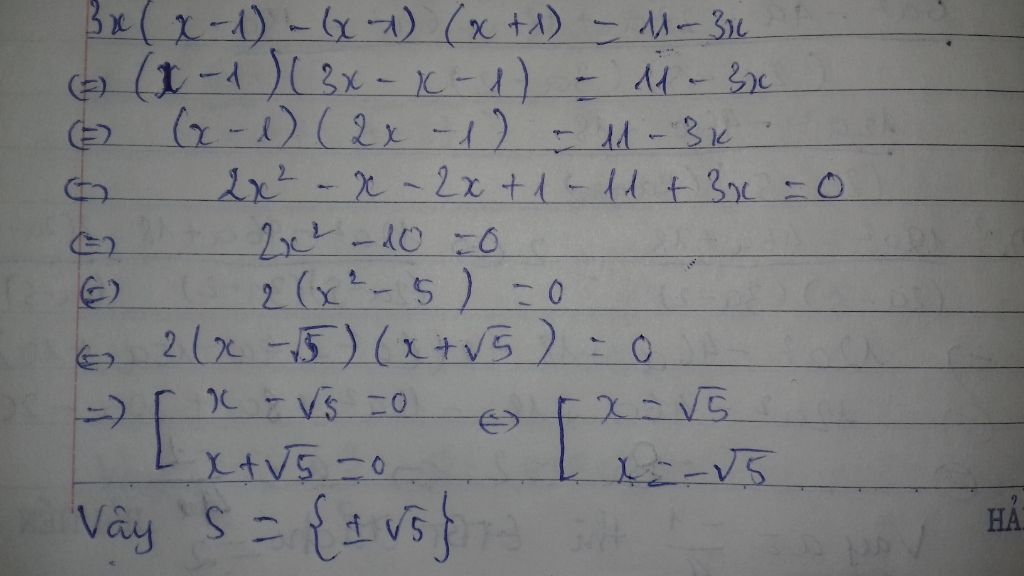 3x(x-1)-(x-1)(x+1) = 11-3x
⇔ (x-1)(3x-x-1) = 11-3x
⇔ (x-1)(2x-1) = 11-3x
⇔ 2x²-x-2x+1-11+3x=0
⇔ 2x²-10=0
⇔ 2(x²-5)=0
⇔ 2(x-√5)(x+√5)=0
⇒ [ x-√5=0 ⇔ [ x=√5
x+√5=0 x=-√5
Vây S = {±√5}
HẢI